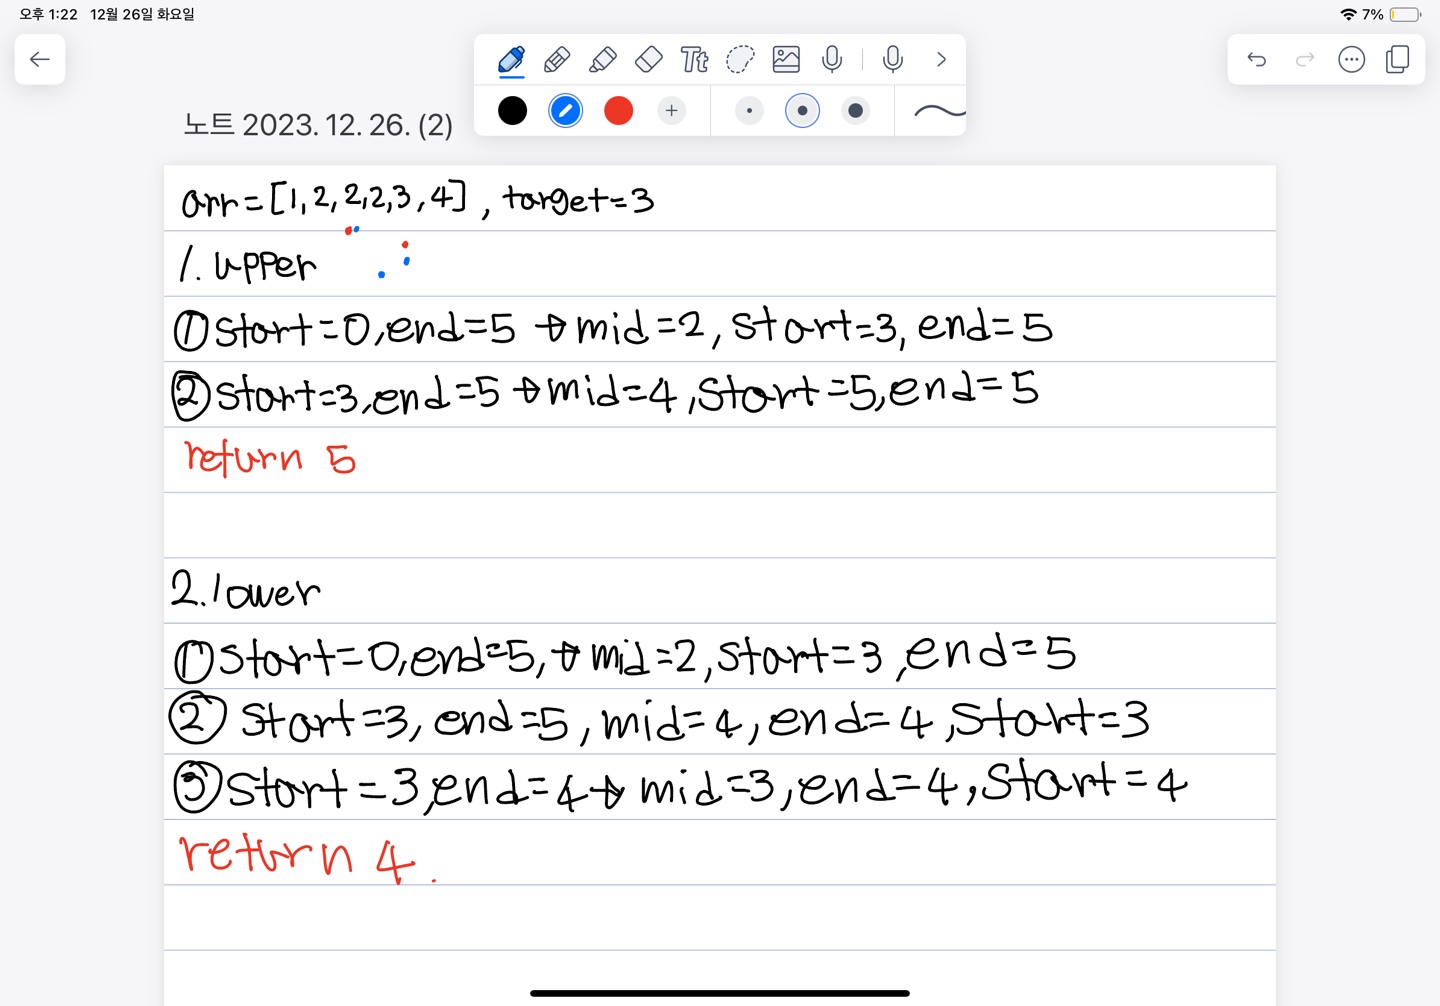 오후 1:22 12월 26일 화요일
7%
Tt
노트 2023. 12. 26. (2)
arr=[1,2,2,2,3,4], target=3
1. upper
①start=0,end=5 → mid=2, start=3, end=5
②start=3,end=5→mid=4,start=5,end=5
return 5
2. lower
①start=0,end=5,→ mid=2,start=3,end=5
② start=3, end=5, mid=4, end=4,start=3
③start=3,end=4→ mid=3,end=4,start=4
return 4.